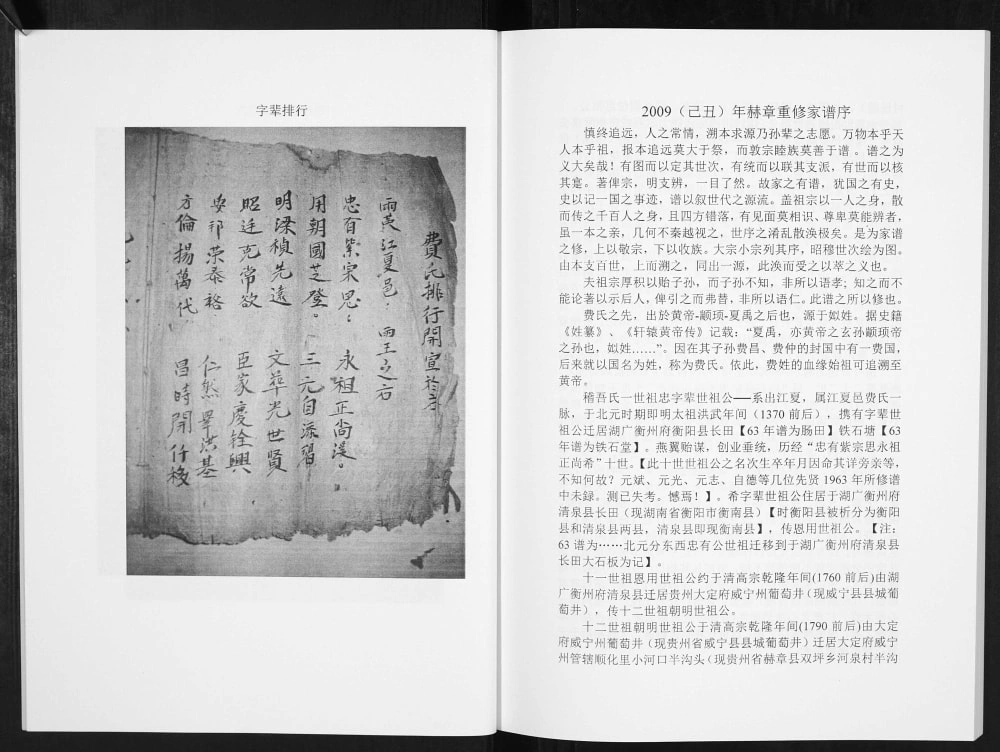 字辈排行
費氏排行開宣於序
兩黃江夏邑．兩王之右
忠有紫宗思：永祖正尚湜。
用朝國芝登。三元自添習
明梁楨先遠 文華光世賢
昭廷克常欲 臣家慶銓興
安邦榮泰裕 仁然畢洪基
方倫揚萬代 昌時開仟移
2009（己丑）年赫章重修家谱序
慎终追远，人之常情，溯本求源乃孙辈之志愿。万物本乎天
人本乎祖，报本追远莫大于祭，而敦宗睦族莫善于谱 。谱之为
义大矣哉！有图而以定其世次，有统而以联其支派，有世而以核
其寔。著俾宗，明支辨，一目了然。故家之有谱，犹国之有史，
史以记一国之事迹，谱以叙世代之源流。盖祖宗以一人之身，散
而传之千百人之身，且四方错落，有见面莫相识、尊卑莫能辨者，
虽一本之亲，几何不秦越视之，世序之淆乱散涣极矣。是为家谱
之修，上以敬宗，下以收族。大宗小宗列其序，昭穆世次绘为图。
由本支百世，上而溯之，同出一源，此涣而受之以萃之义也。
夫祖宗厚积以贻子孙，而子孙不知，非所以语孝；知之而不
能论著以示后人，俾引之而弗替，非所以语仁。此谱之所以修也。
费氏之先，出於黄帝-颛顼-夏禹之后也，源于姒姓。据史籍
《姓纂》、《轩辕黄帝传》记载：“夏禹，亦黄帝之玄孙颛顼帝
之孙也，姒姓……”。因在其子孙费昌、费仲的封国中有一费国，
后来就以国名为姓，称为费氏。依此，费姓的血缘始祖可追溯至
黄帝。
稽吾氏一世祖忠字辈世祖公──系出江夏，属江夏邑费氏一
脉，于北元时期即明太祖洪武年间（1370 前后），携有字辈世
祖公迁居湖广衡州府衡阳县长田【63 年谱为肠田】铁石塘【63
年谱为铁石堂】。燕翼贻谋，创业垂统，历经“忠有紫宗思永祖
正尚希”十世。【此十世世祖公之名次生卒年月因命其详旁亲等，
不知何故？元斌、元光、元志、自德等几位先贤 1963 年所修谱
中未録。测已失考。憾焉！】。希字辈世祖公住居于湖广衡州府
清泉县长田（现湖南省衡阳市衡南县）【时衡阳县被析分为衡阳
县和清泉县两县，清泉县即现衡南县】，传恩用世祖公。【注：
63 谱为……北元分东西忠有公世祖迁移到于湖广衡州府清泉县
长田大石板为记】。
十一世祖恩用世祖公约于清高宗乾隆年间(1760 前后)由湖
广衡州府清泉县迁居贵州大定府威宁州葡萄井（现威宁县县城葡
萄井），传十二世祖朝明世祖公。
十二世祖朝明世祖公于清高宗乾隆年间(1790 前后)由大定
府威宁州葡萄井（现贵州省威宁县县城葡萄井）迁居大定府威宁
州管辖顺化里小河口半沟头（现贵州省赫章县双坪乡河泉村半沟